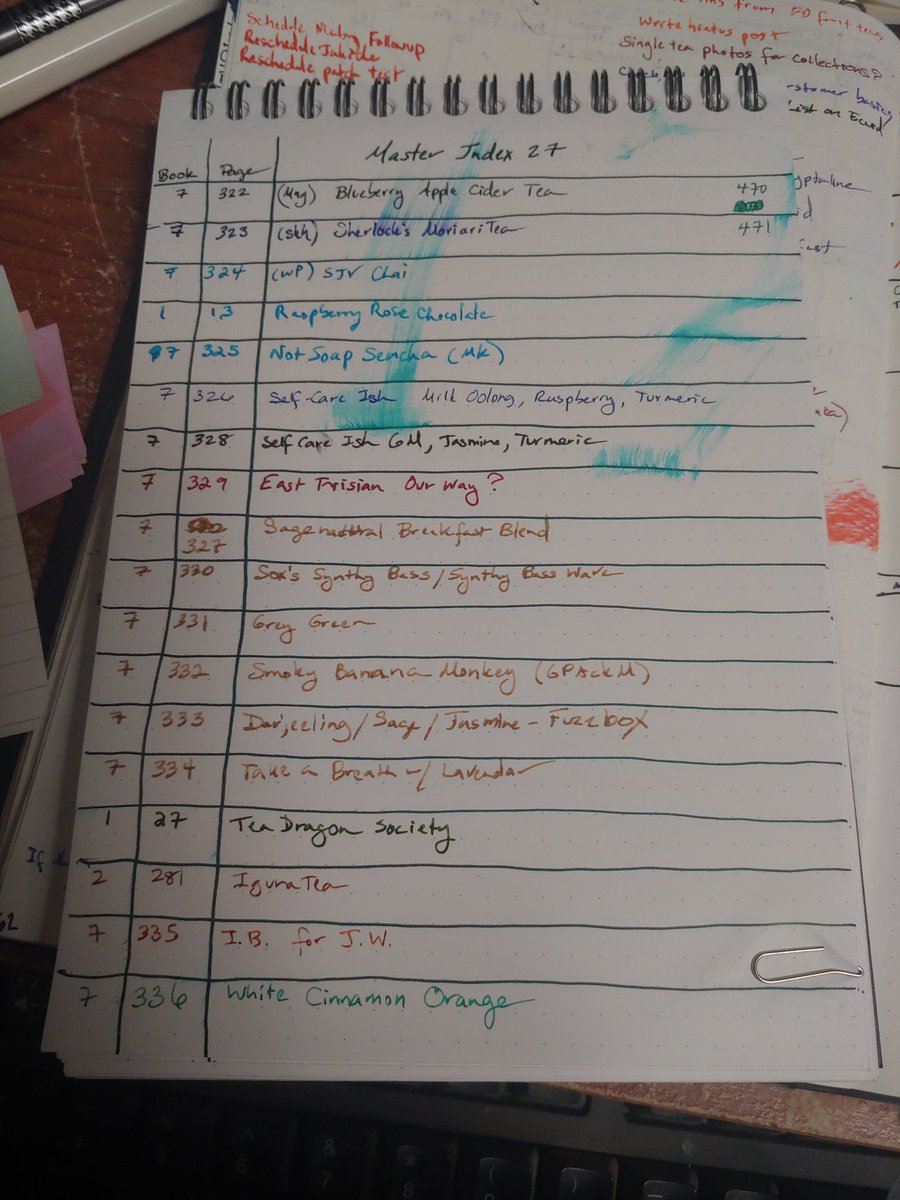 Reschedule
Followup
Reschedule patch test
from FD fruit teas
Write hiatus post
Single tea photos for collections?
List on
Master Index 27
Book Page
7 322 (May) Blueberry Apple Cider Tea 470
7 323 (Skh) Sherlock's MoriariTea 471
7 324 (WP) SJV Chai
1 13 Raspberry Rose Chocolate
7 325 Not Soap Sencha (MK)
7 326 Self-Care Ish Milk Oolong, Raspberry, Turmeric
7 328 Self Care Ish GM, Jasmine, Turmeric
7 329 East Frisian Our Way?
7 327 Sagenatural Breakfast Blend
7 330 Sox's Synthy Bass/Synthy Bass Wave
7 331 Grey Green
7 332 Smoky Banana Monkey (GPAckM)
7 333 Darjeeling/Sage/Jasmine - Fuzzbox
7 334 Take a Breath w/ Lavendar
1 27 Tea Dragon Society
2 281 IgunaTea
7 335 I.B. for J.W.
7 336 White Cinnamon Orange
If